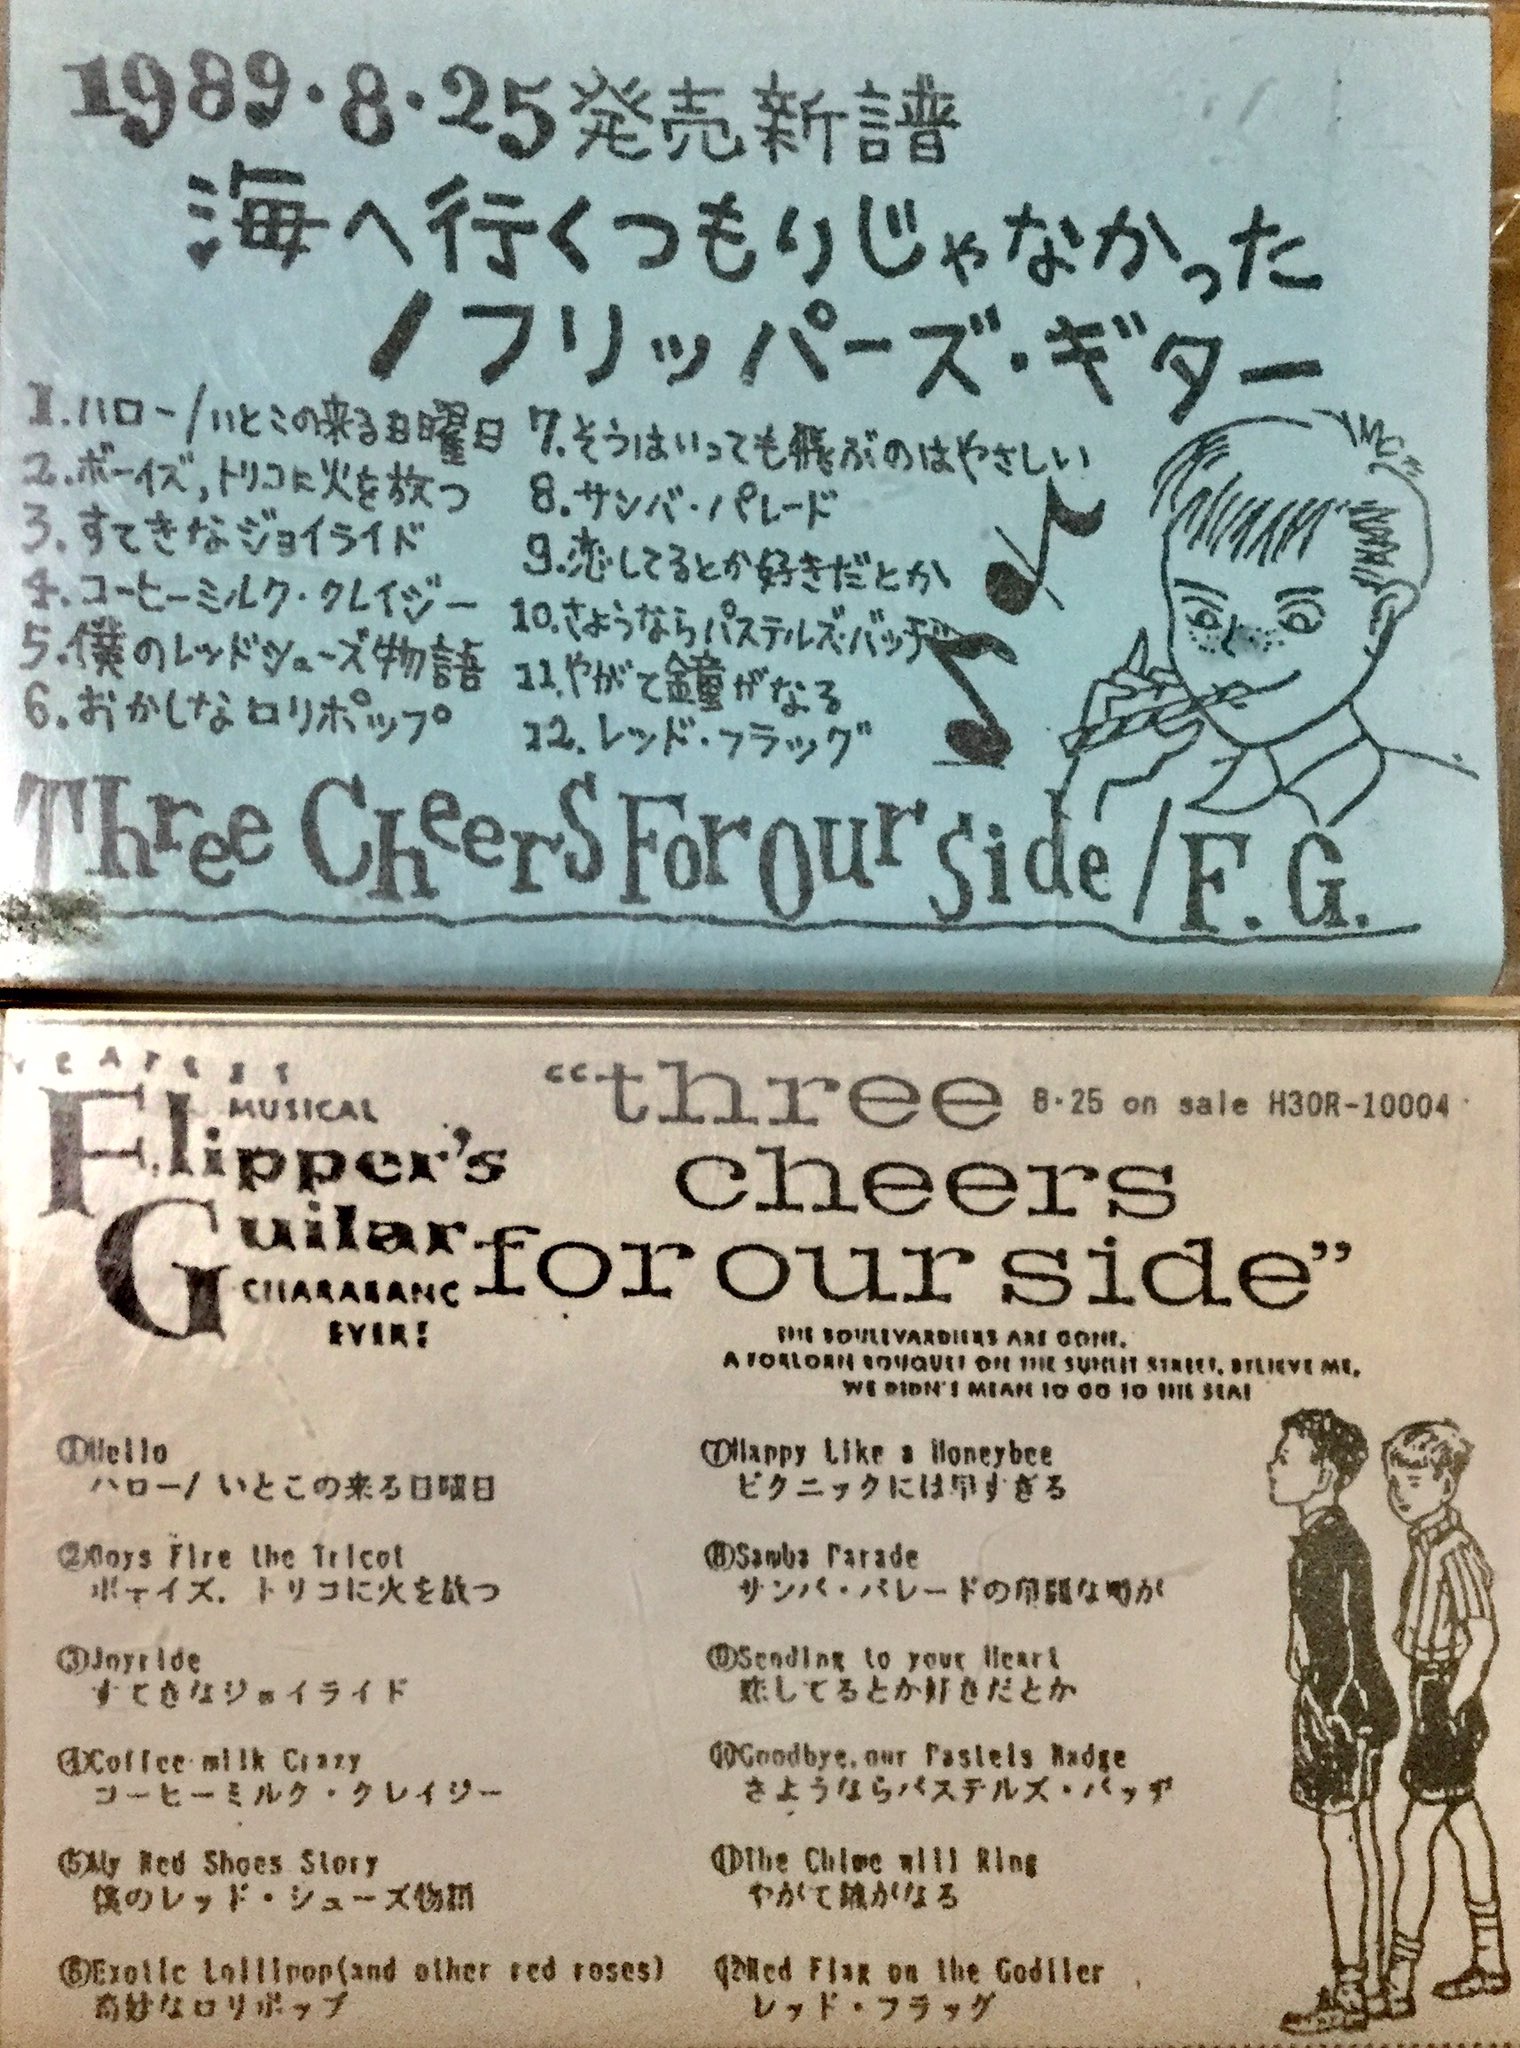 1989・8・25発売新譜
海へ行くつもりじゃなかった
/フリッパーズ・ギター
1.ハロー/いとこの来る日曜日
2.ボーイズ,トリコに火を放つ
3.すてきなジョイライド
4.コーヒーミルク・クレイジー
5.僕のレッドシューズ物語
6.おかしなロリポップ
7.そうはいっても飛ぶのはやさしい
8.サンバ・パレード
9.恋してるとか好きだとか
10.さようならパステルズ・バッヂ
11.やがて鐘がなる
12.レッド・フラッグ
Three Cheers For Our Side/F.G.
MUSICAL
Flipper's
Guitar
CHARABANC
EVER!
“three
8・25 on sale H30R-10004
cheers
for our side”
THE BOULEVARDIERS ARE GONE,
A FORLORN BOUQUET ON THE SUNLIT STREET, BELIEVE ME,
WE DIDN'T MEAN TO GO TO THE SEA!
①Hello
ハロー/いとこの来る日曜日
②Boys Fire the Tricot
ボーイズ, トリコに火を放つ
③Joyride
すてきなジョイライド
④Coffee-milk Crazy
コーヒーミルク・クレイジー
⑤My Red Shoes Story
僕のレッド・シューズ物語
⑥Exotic Lollipop(and other red roses)
奇妙なロリポップ
⑦Happy Like a Honeybee
ピクニックには早すぎる
⑧Samba Parade
サンバ・パレードの華麗な噂が
⑨Sending to your Heart
恋してるとか好きだとか
⑩Goodbye,our Pastels Badge
さようならパステルズ・バッヂ
⑪The Chime will Ring
やがて鐘がなる
⑫Red Flag on the Gondler
レッド・フラッグ